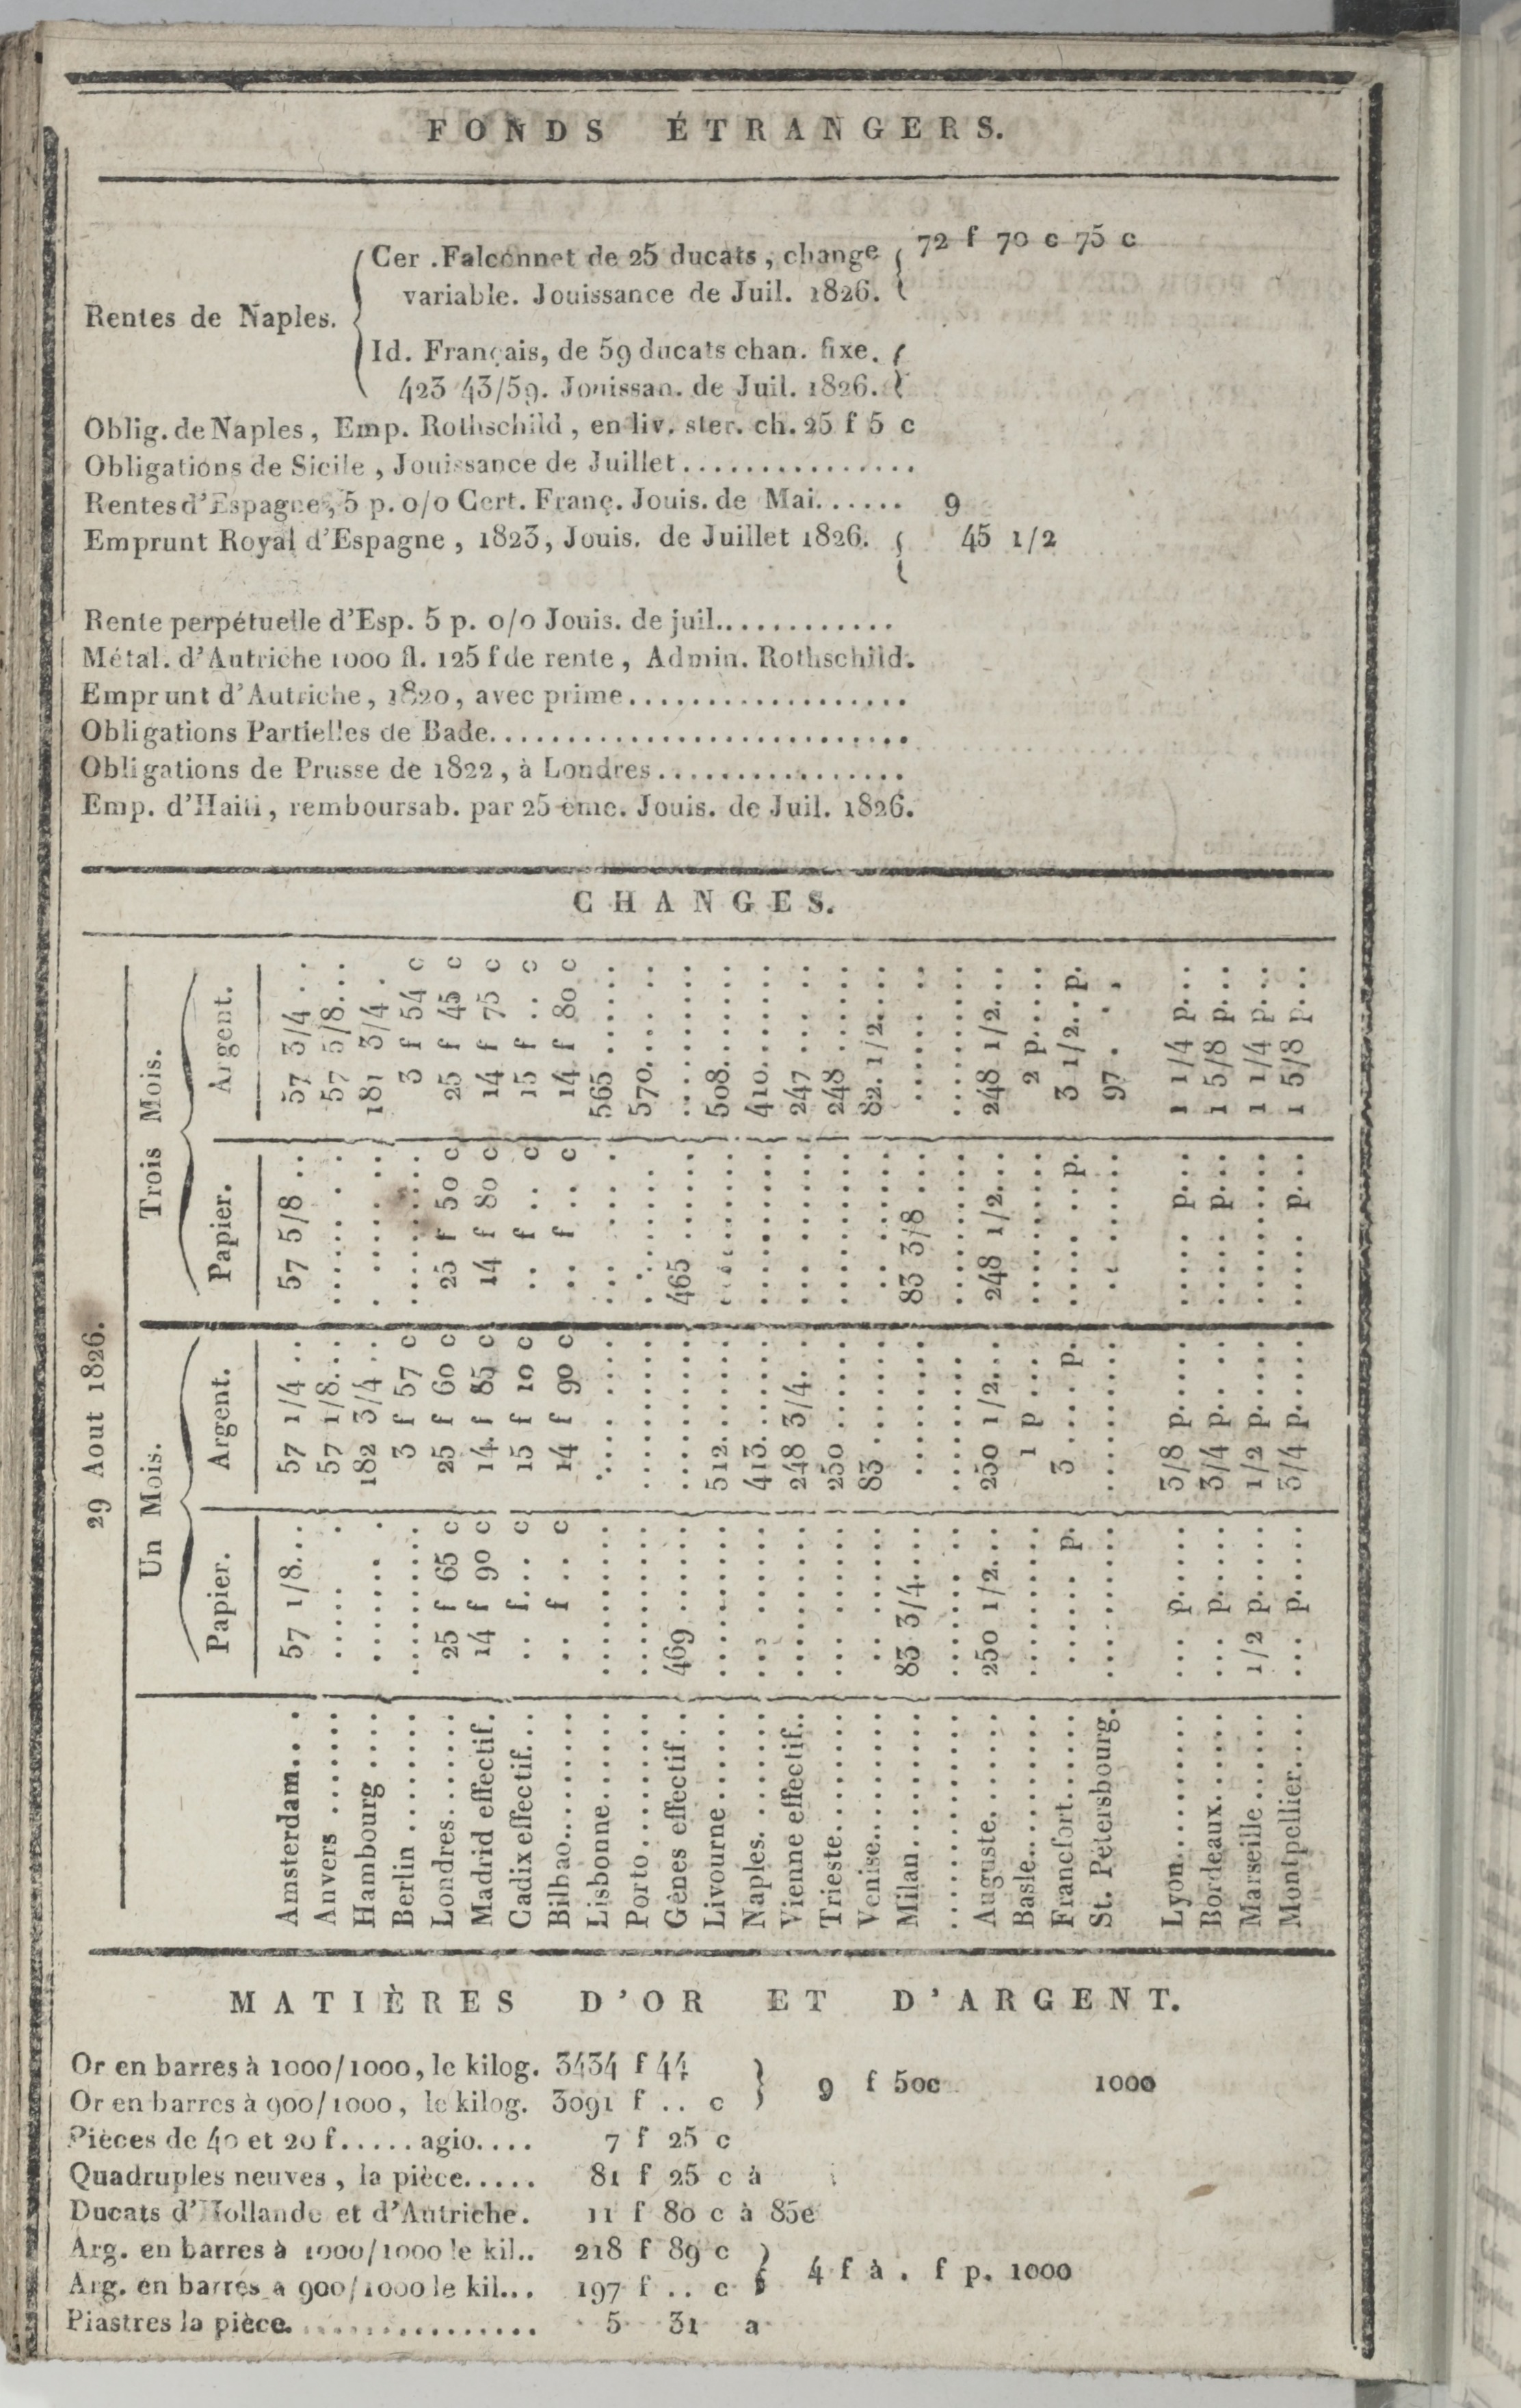 FONDS ÉTRANGERS.
Rentes de Naples.
Cer .Falconnet de 25 ducats, change
variable. Jouissance de Juil. 1826.
72 f 70 c 75 c
Id. Français, de 59 ducats chan. fixe.
423 43/59. Jouissan. de Juil. 1826.
Oblig. de Naples, Emp. Rothschild, en liv. ster. ch. 25 f 5 c
Obligations de Sicile, Jouissance de Juillet...............
Rentes d'Espagne, 5 p. 0/0 Cert. Franç. Jouis. de Mai...... 9
Emprunt Royal d'Espagne, 1823, Jouis. de Juillet 1826. 45 1/2
Rente perpétuelle d'Esp. 5 p. 0/0 Jouis. de juil............
Métal. d'Autriche 1000 fl. 125 f de rente, Admin. Rothschild.
Emprunt d'Autriche, 1820, avec prime..................
Obligations Partielles de Bade...........................
Obligations de Prusse de 1822, à Londres................
Emp. d'Haiti, remboursab. par 25 ème. Jouis. de Juil. 1826.
CHANGES.
29 Aout 1826.
Un Mois. Trois Mois.
Papier. Argent. Papier. Argent.
Amsterdam... 57 1/8... 57 1/4 .. 57 5/8 .. 57 3/4 ..
Anvers ...... ..... . 57 1/8... ..... . . 57 5/8...
Hambourg .... ...... . 182 3/4 .. ....... 181 3/4 .
Berlin ....... ........ 3 f 57 c ........ 3 f 54 c
Londres...... 25 f 65 c 25 f 60 c 25 f 50 c 25 f 45 c
Madrid effectif. 14 f 90 c 14 f 85 c 14 f 80 c 14 f 75 c
Cadix effectif... .. f... c 15 f 10 c .. f .. c 15 f .. c
Bilbao........ .. f .. c 14 f 90 c .. f .. c 14 f 80 c
Lisbonne...... ........ ........ ........ 565 ......
Porto........ ........ ........ ........ 570......
Gènes effectif... 469 ...... ........ 465 ...... ........
Livourne...... ........ 512...... ........ 508......
Naples....... ........ 413...... ........ 410......
Vienne effectif.. ........ 248 3/4. . ........ 247 ....
Trieste....... ........ 250 ..... ........ 248 .....
Venise....... ........ 83 ...... ........ 82. 1/2....
Milan........ 83 3/4.... ........ 83 3/8 ... ........
.............. ........ ........ ........ ........
Auguste...... 250 1/2... 250 1/2... 248 1/2... 248 1/2...
Basle........ ........ 1 p .... ........ 2 p.....
Francfort...... ...... p. 3 ..... p. ...... p. 3 1/2.. p.
St. Pétersbourg. ........ ........ ........ 97 . . .
Lyon........ ... p..... 3/8 p..... ..... p... 1 1/4 p...
Bordeaux..... ... p..... 3/4 p.. .. ..... p... 1 5/8 p...
Marseille...... 1/2 p..... 1/2 p..... ........ 1 1/4 p...
Montpellier.... ... p..... 3/4 p..... ..... p... 1 5/8 p...
MATIÈRES D'OR ET D'ARGENT.
Or en barres à 1000/1000, le kilog. 3434 f 44
Or en barres à 900/1000, le kilog. 3091 f .. c
9 f 50c 1000
Pièces de 40 et 20 f..... agio.... 7 f 25 c
Quadruples neuves, la pièce..... 81 f 25 c à
Ducats d'Hollande et d'Autriche. 11 f 80 c à 85c
Arg. en barres à 1000/1000 le kil.. 218 f 89 c
Arg. en barres à 900/1000 le kil... 197 f .. c
4 f à . f p. 1000
Piastres la pièce................ 5 31 a